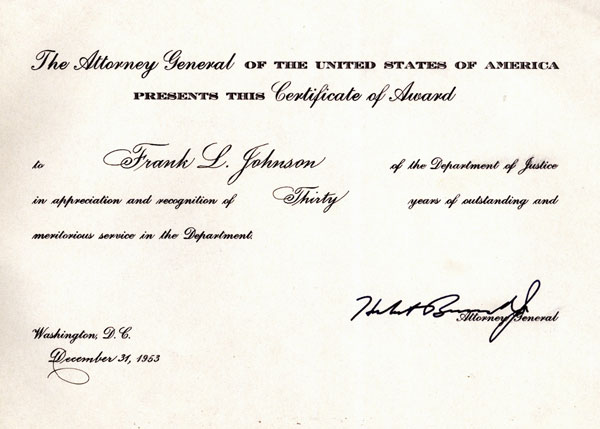 The Attorney General OF THE UNITED STATES OF AMERICA
PRESENTS THIS Certificate of Award
to Frank L. Johnson of the Department of Justice
in appreciation and recognition of Thirty years of outstanding and
meritorious service in the Department.
Attorney General
Washington, D.C.
December 31, 1953